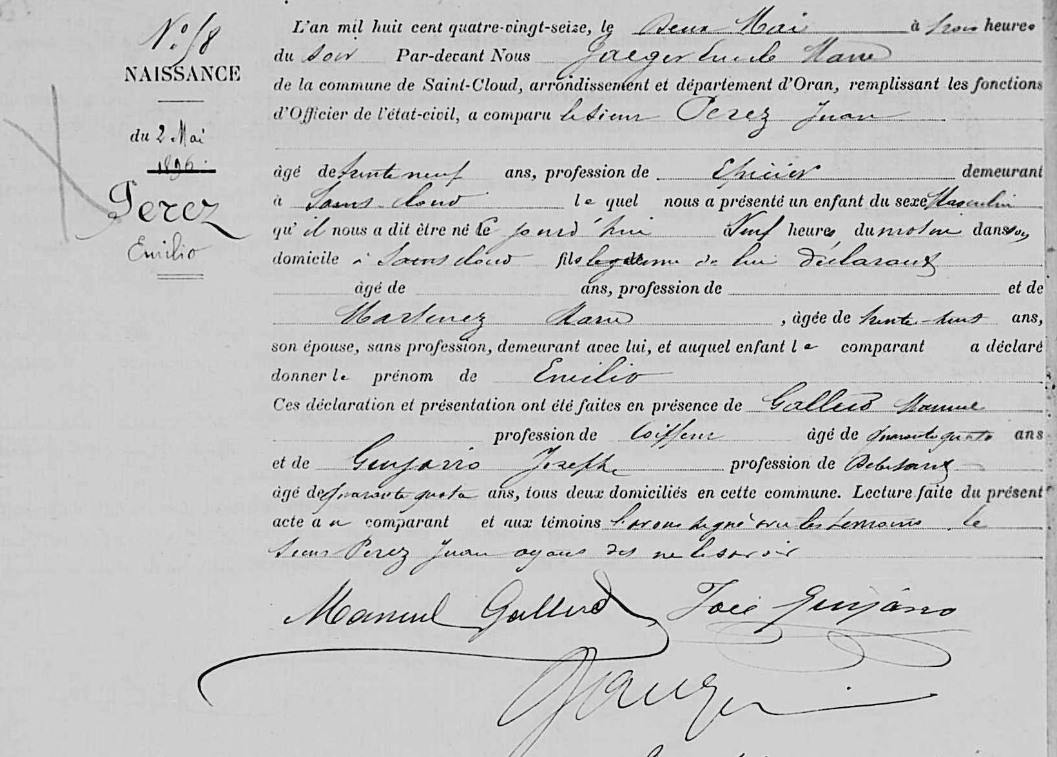 N° 58
NAISSANCE
du 2 Mai
1896
Perez
Emilio
L'an mil huit cent quatre-vingt-seize, le deux Mai à trois heures
du soir Par-devant Nous Jaeger Maire
de la commune de Saint-Cloud, arrondissement et département d'Oran, remplissant les fonctions
d'Officier de l'état-civil, a comparu le sieur Perez Juan
âgé de trente neuf ans, profession de Epicier demeurant
à Saint-Cloud lequel nous a présenté un enfant du sexe Masculin
qu'il nous a dit être né ce jourd'hui à Neuf heures du matin dans son
domicile à Saint Cloud fils légitime de lui déclarant
âgé de ans, profession de et de
Martinez Marie, âgée de trente-huit ans,
son épouse, sans profession, demeurant avec lui, et auquel enfant le comparant a déclaré
donner le prénom de Emilio
Ces déclaration et présentation ont été faites en présence de Gallud Manuel
profession de Coiffeur âgé de quarante quatre ans
et de Guijarro Joseph profession de Débitant
âgé de quarante quatre ans, tous deux domiciliés en cette commune. Lecture faite du présent
acte au comparant et aux témoins l'avons signé avec les témoins le
sieur Perez Juan ayant dit ne le savoir
Manuel Gallud José Guijarro
Jaeger